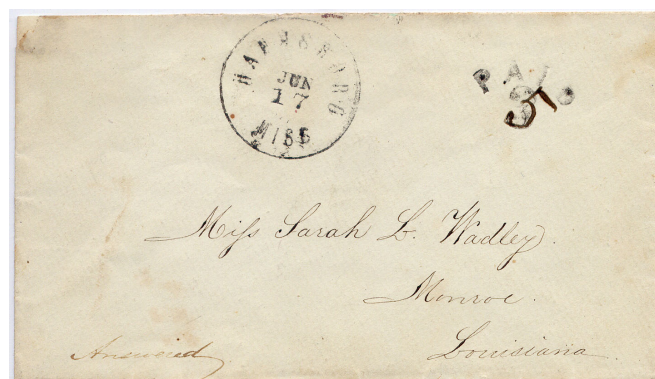 HANSBORG
JUN
17
MISS
PAID
3
Miss Sarah L. Wadley.
Monroe.
Louisiana
Answered